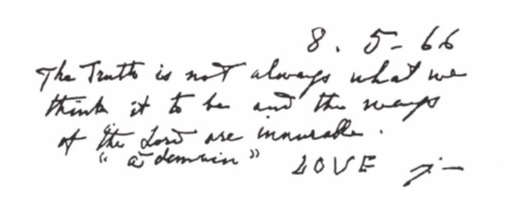 8. 5-66
The Truth is not always what we
think it to be and the ways
of the Lord are innurable.
"a demain" LOVE